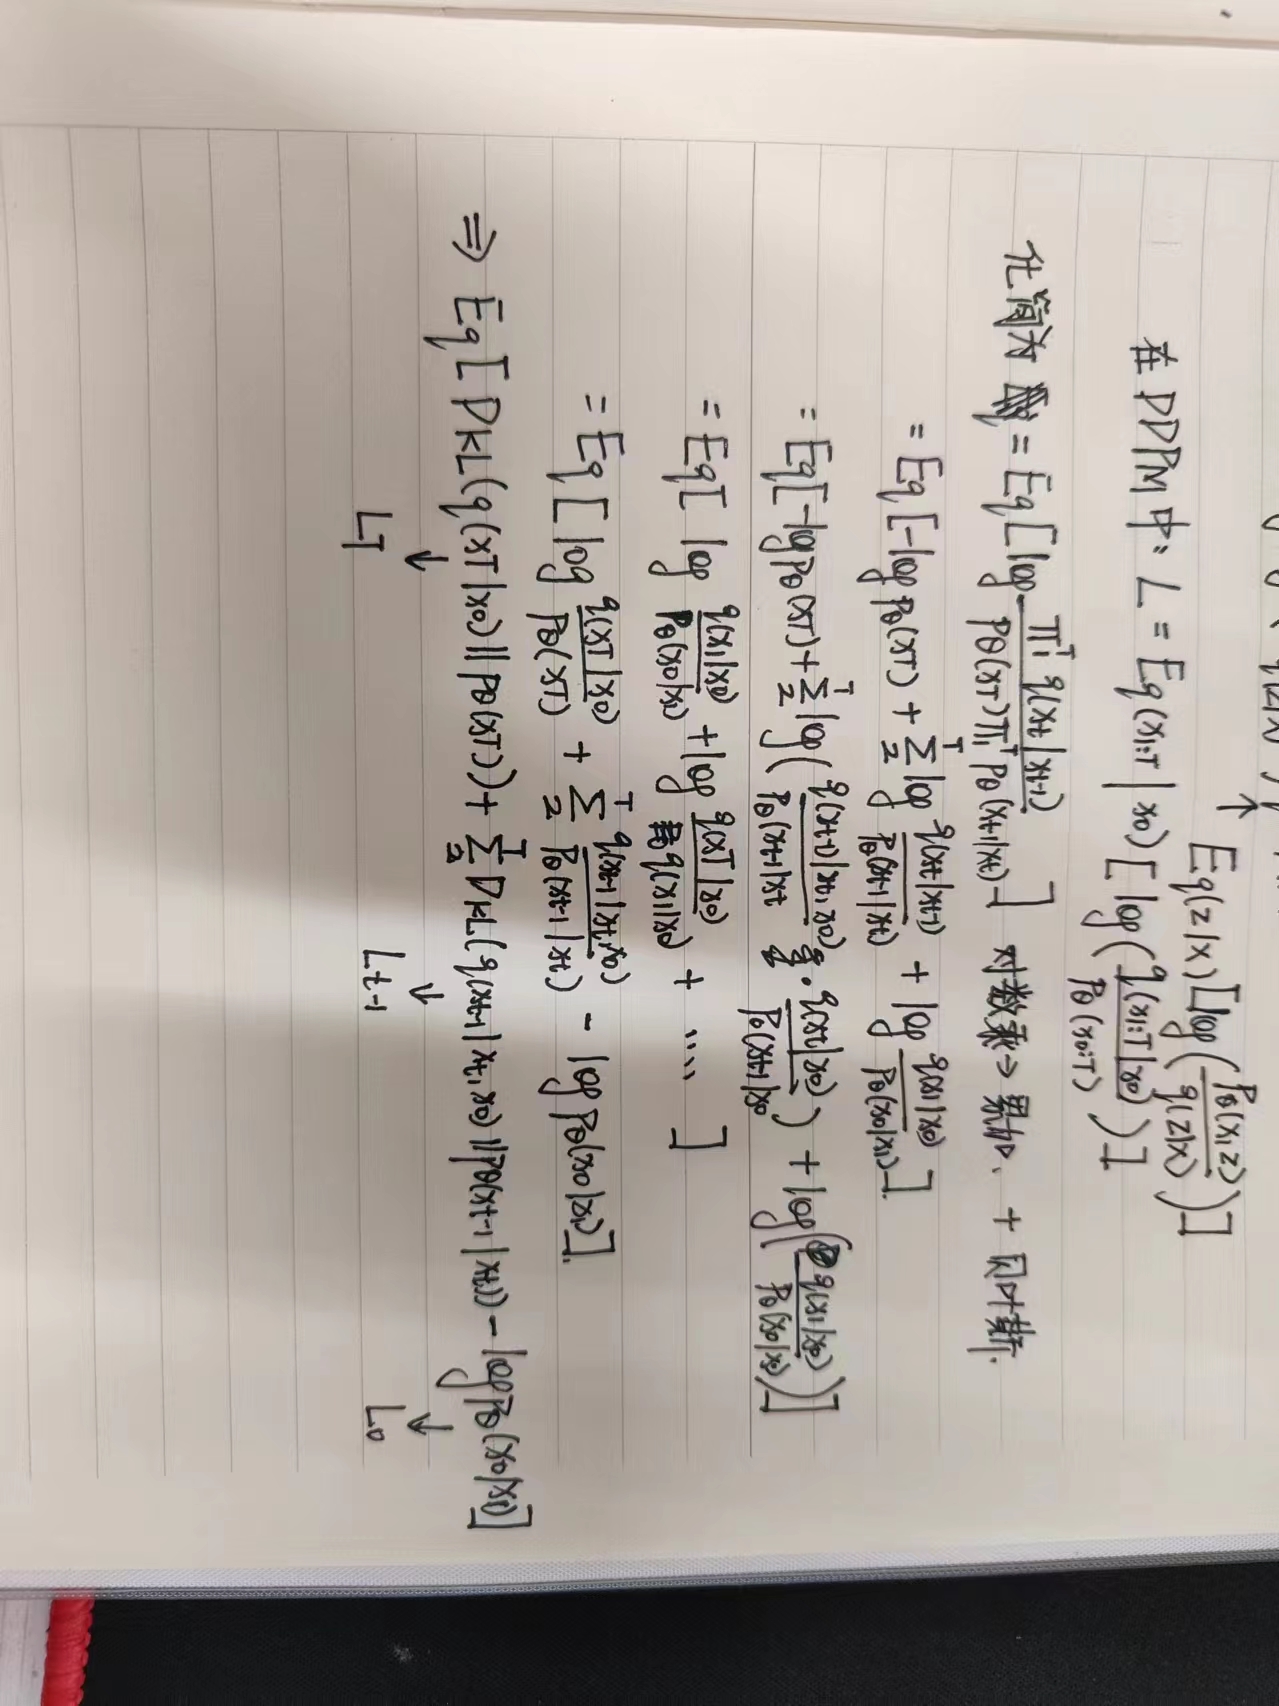 ↑ Eq(z|x)[log(Pθ(x,z)/q(z|x))]
在DDPM中: L = Eq(x1:T|x0)[log(q(x1:T|x0)/Pθ(x0:T))]
化简为 = Eq[log Π₁ᵀ q(xt|xt-1)/Pθ(xT)Π₁ᵀ Pθ(xt-1|xt)] 对数乘→累加. + 贝叶斯.
= Eq[-log pθ(xT) + Σ₂ᵀ log q(xt|xt-1)/Pθ(xt-1|xt) + log q(x1|x0)/Pθ(x0|x1)].
= Eq[-log pθ(xT) + Σ₂ᵀ log(q(xt-1|xt,x0)/Pθ(xt-1|xt · q(xt|x0)/Pθ(xt-1|x0) + log(q(x1|x0)/Pθ(x0|x1))]
= Eq[ log q(x1|x0)/Pθ(x0|x1) + log q(xT|x0)/q(x1|x0) + ···· ]
= Eq[log q(xT|x0)/Pθ(xT) + Σ₂ᵀ q(xt-1|xt,x0)/Pθ(xt-1|xt) - log Pθ(x0|x1)].
⇒ Eq[DKL(q(xT|x0)||pθ(xT)) + Σ₂ᵀ DKL(q(xt-1|xt,x0)||pθ(xt-1|xt)) - log pθ(x0|x1)]
↓ ↓ ↓
LT Lt-1 L0